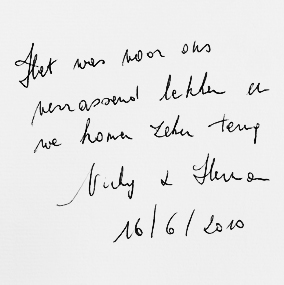 Het was voor ons
verrassend lekker en
we komen zeker terug
Nicky & Herman
16/6/2010